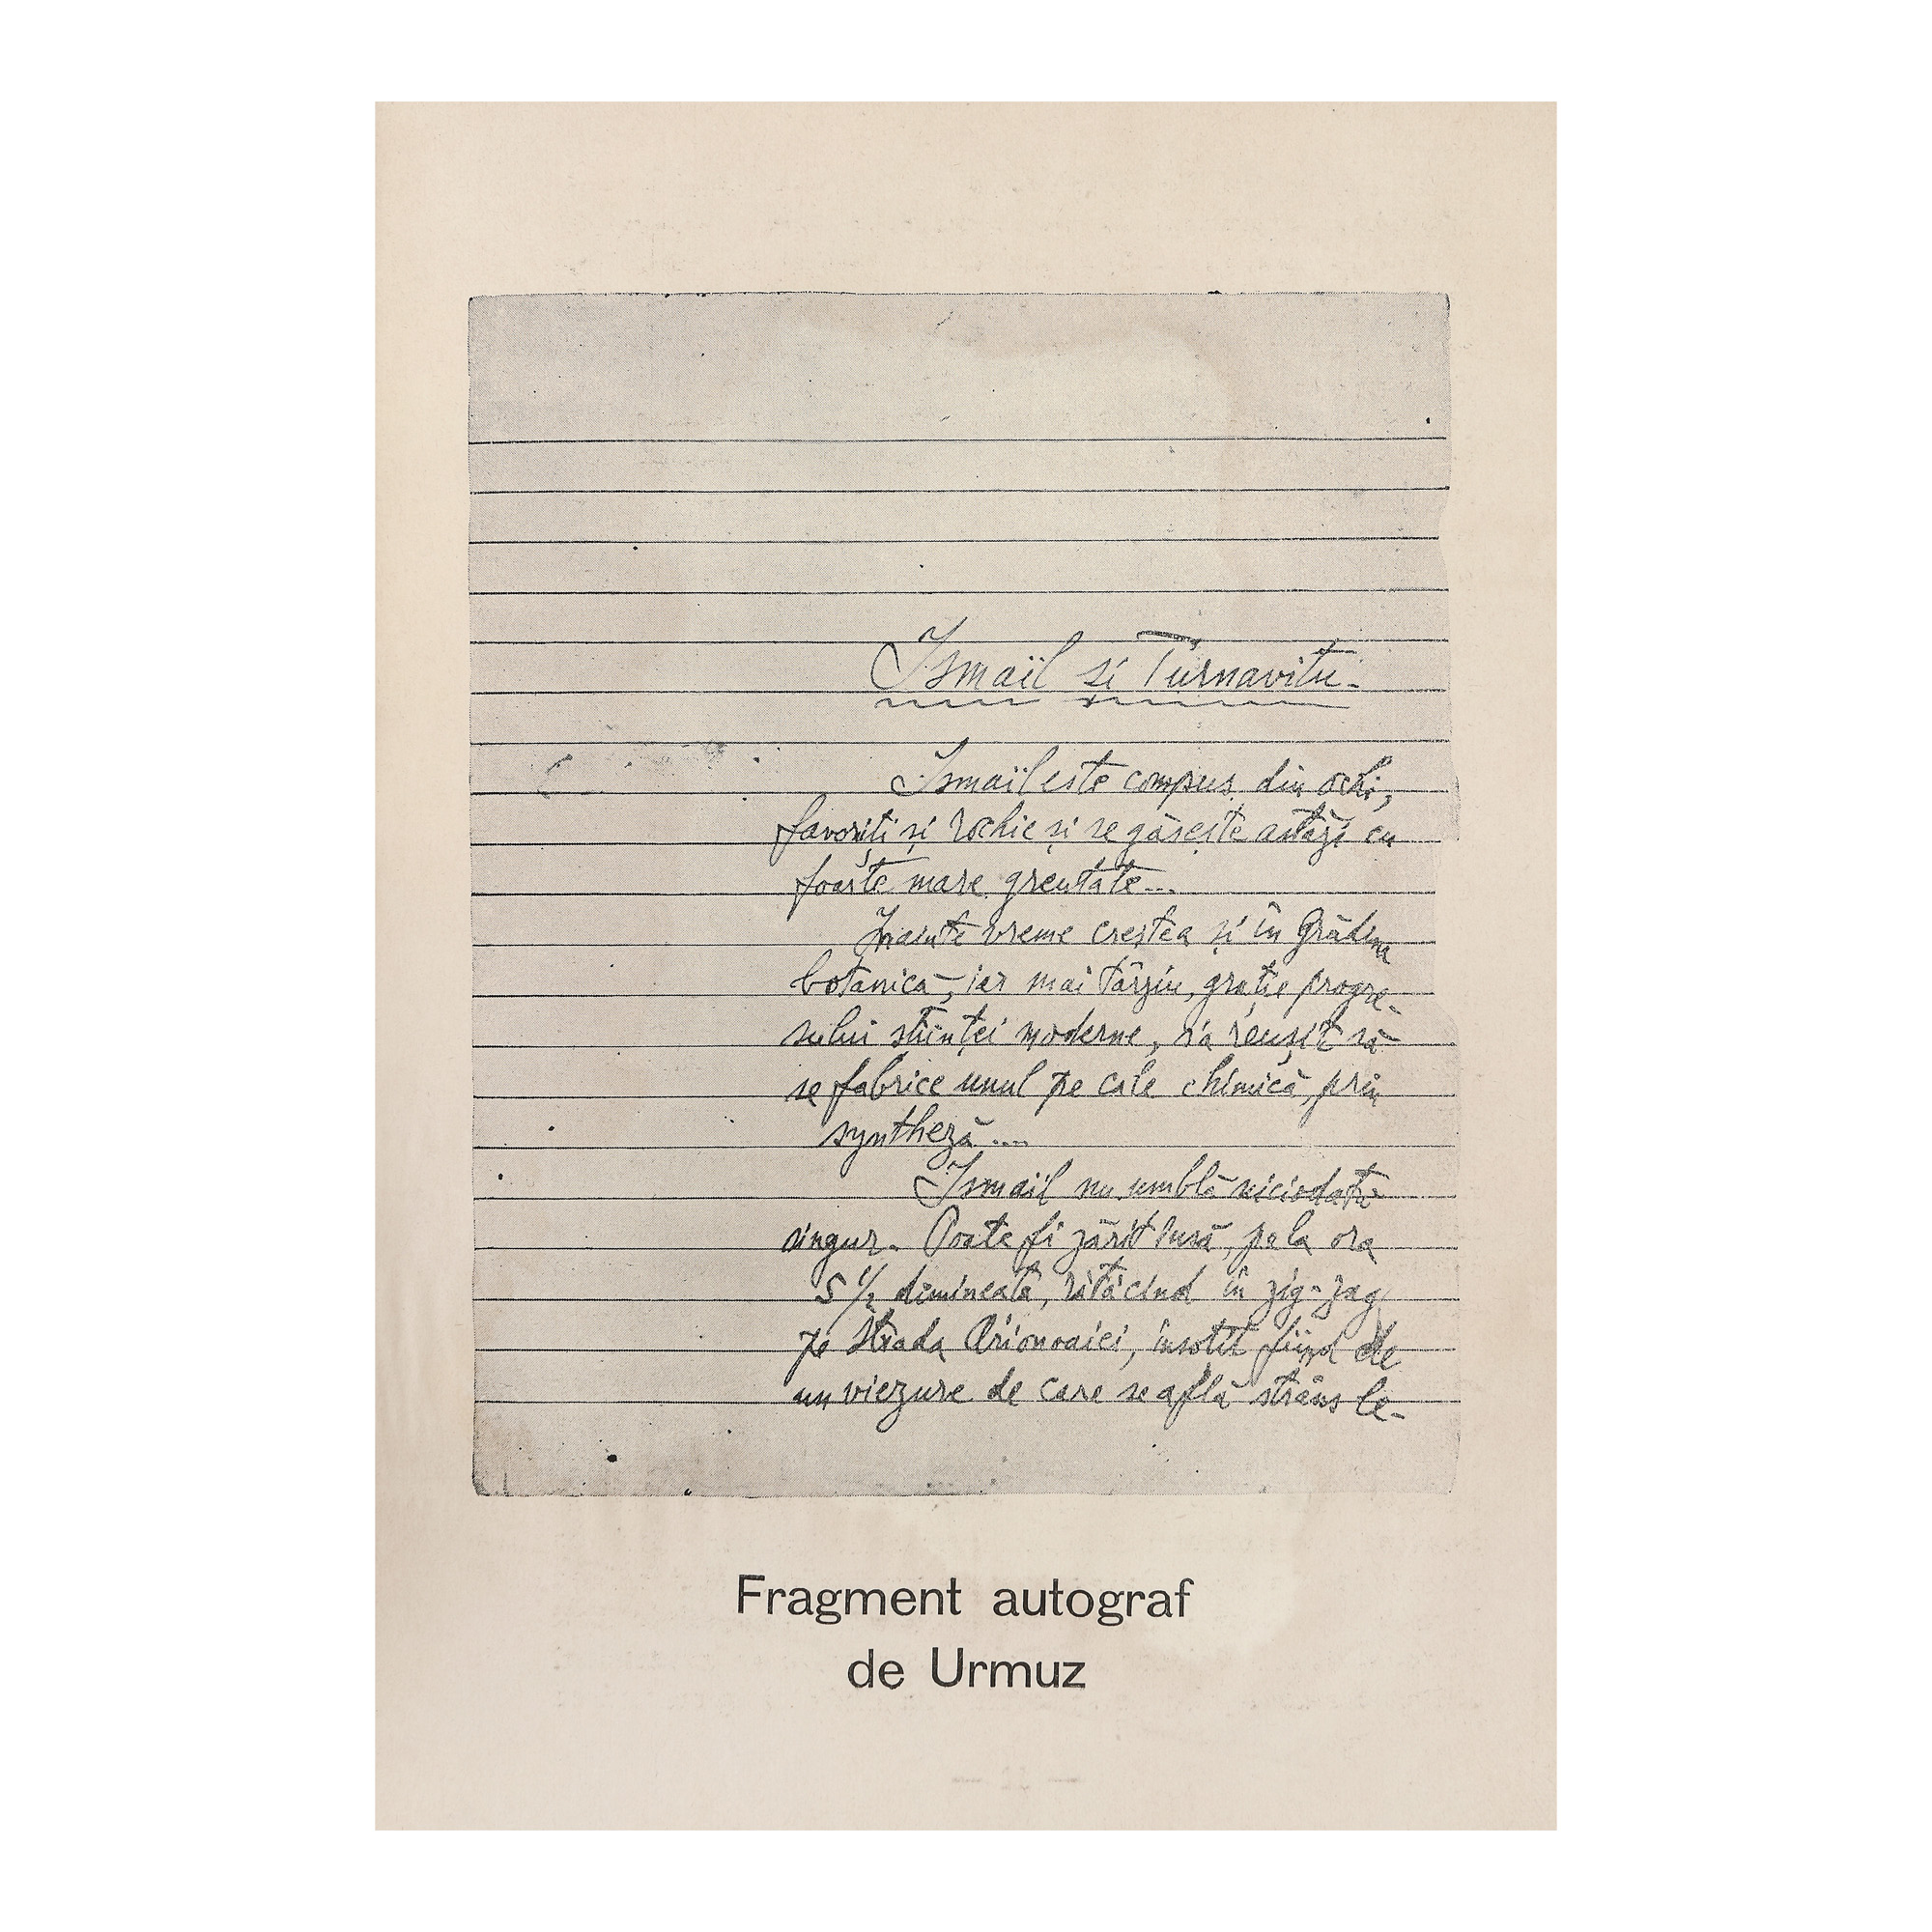 Ismaïl si Turnavitu.
Ismaïl este compus din ochi,
favoriți și rochie și se găsește astăzi cu
foarte mare greutate...
Inainte vreme creștea și în Grădina
botanică, iar mai târziu, grație progre-
sului stiinței moderne, s'a reușit să
se fabrice unul pe cale chimică, prin
syntheză....
Ismaïl nu umblă niciodată
singur. Poate fi zărit însă, pe la ora
5 1/2 dimineata, rătăcind în zig-zag
pe strada Arionoaiei, însotit fiind de
un viezure de care se află strâns le-
Fragment autograf
de Urmuz